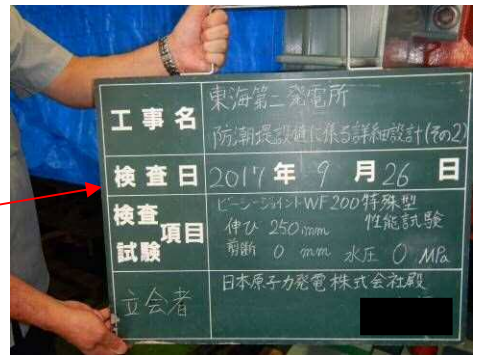 工事名 東海第二発電所
防潮堤設置に係る詳細設計(その2)
検査日 2017年 9月26日
検査試験項目 ピーシージョイントWF200特殊型
性能試験
伸び 250mm
剪断 0 mm 水圧 0 MPa
立会者 日本原子力発電株式会社殿